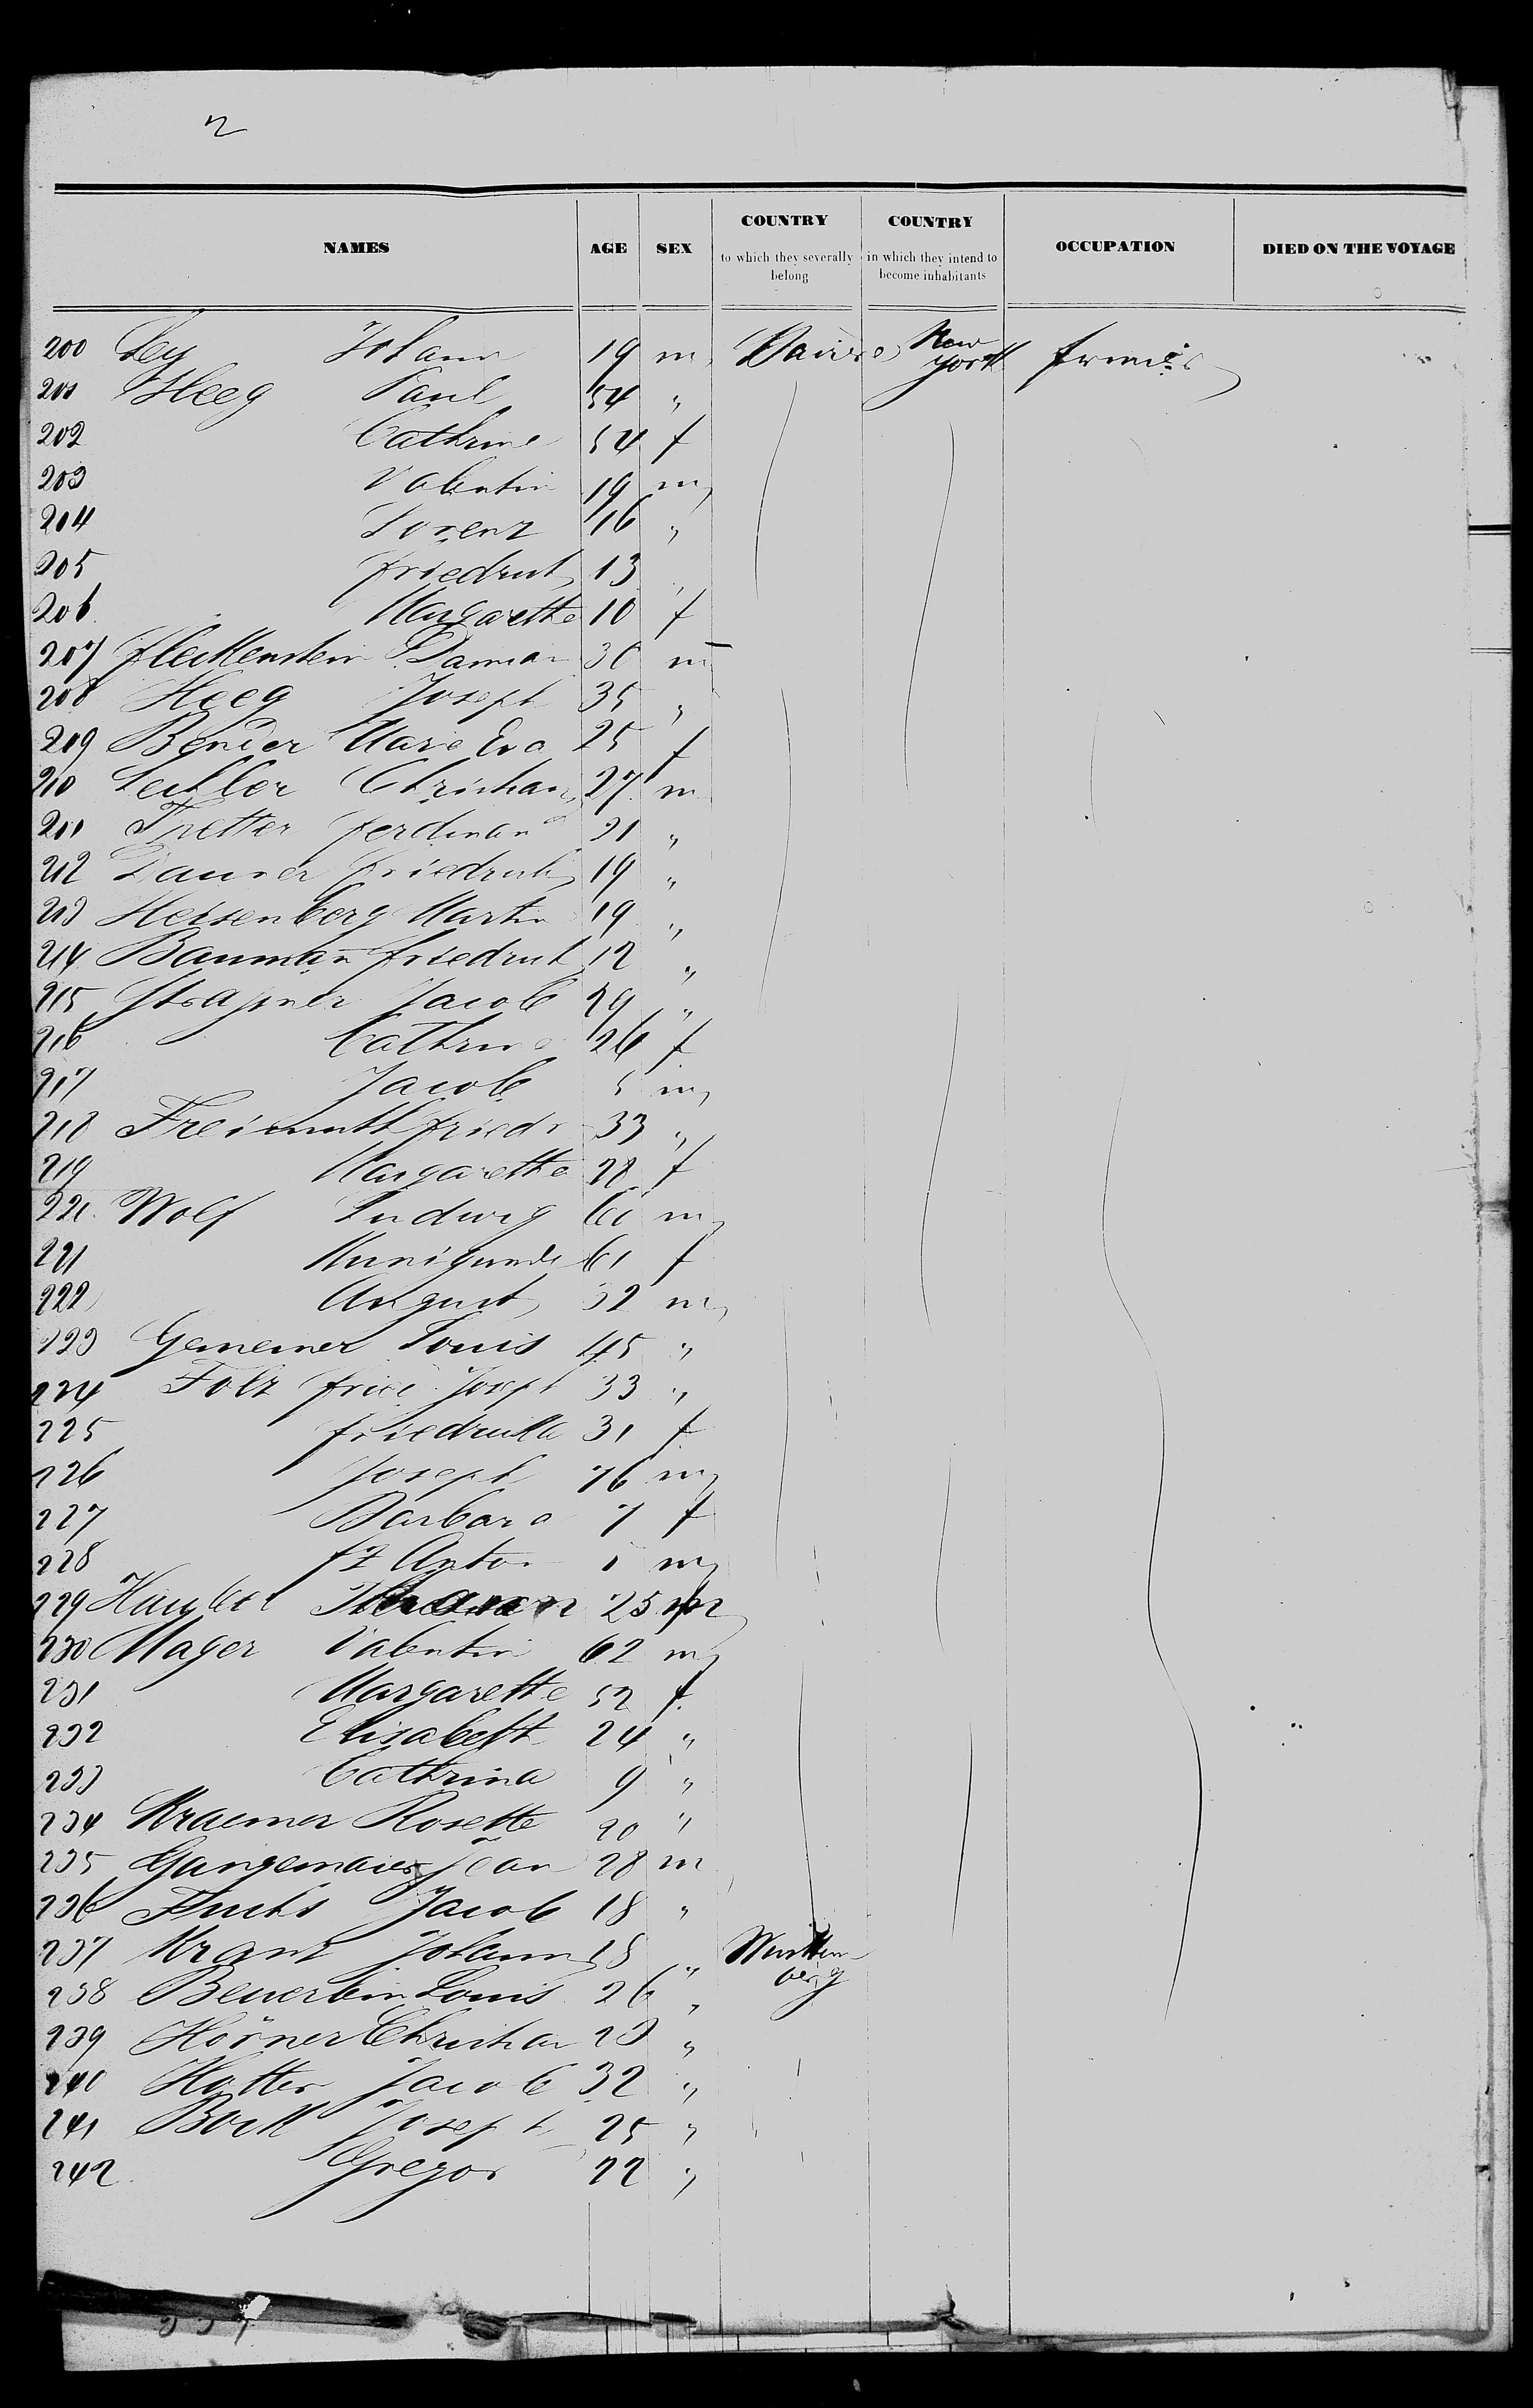 2
NAMES AGE SEX COUNTRY to which they severally belong COUNTRY in which they intend to become inhabitants OCCUPATION DIED ON THE VOYAGE
200 Ley Johann 19 m New York
201 Heeg Paul 54 "
202 Cathrine 54 f
203 Valentin 19 m
204 Lorenz 16 "
205 friedrich 13 "
206 Margarethe 10 f
207 fleckenstein Damian 30 m
208 Heeg Joseph 35 "
209 Bender Marie Eva 25 f
210 Christian 27 m
211 ferdinand 21 "
212 Daurer friedrich 19 "
213 Heisenberg Martin 19 "
214 Bauman friedrich 12 "
215 Jacob 29 "
216 Cathrine 26 f
217 Jacob 5 m
218 Freimuth friedr 33 "
219 Margarethe 28 f
220 Wolf Ludwig m
221 Kunigunde 61 f
222 August 32 m
223 Gemeiner Louis 45 "
224 Folz Joseph 33 "
225 friedricka 31 f
226 Joseph m
227 Barbara 7 f
228 fz Anton 1 m
229 25
230 Mager Valentin 62 m
231 Margarethe 52 f
232 Elisabeth 24 "
233 Cathrina 9 "
234 Kraemer Rosette 20 "
235 Gangemaier Jean 28 m
236 Fuchs Jacob 18 "
237 Kranz Johann 18 " Wurttemberg
238 Beuerbin Louis 26 "
239 Hörner Christian 23 "
240 Hotter Jacob 32 "
241 Bock Joseph 25 "
242 Gregor 22 "